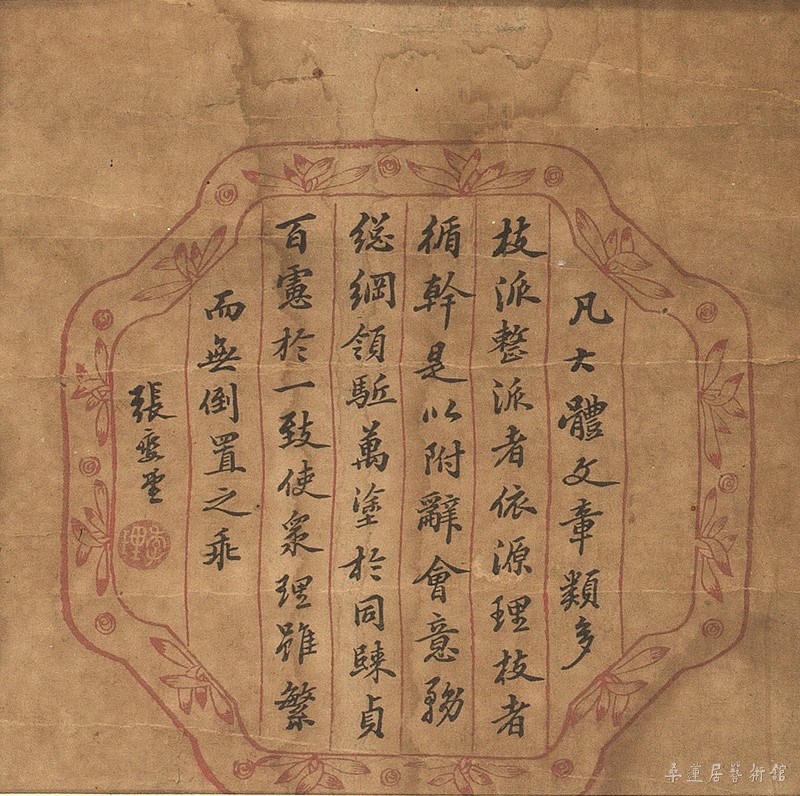 凡大體文章類多
枝派整派者依源理枝者
循幹是以附辭會意務
緫綱領駈萬塗於同歸貞
百慮於一致使衆理雖繁
而無倒置之乖
張
桑蓮居藝術館